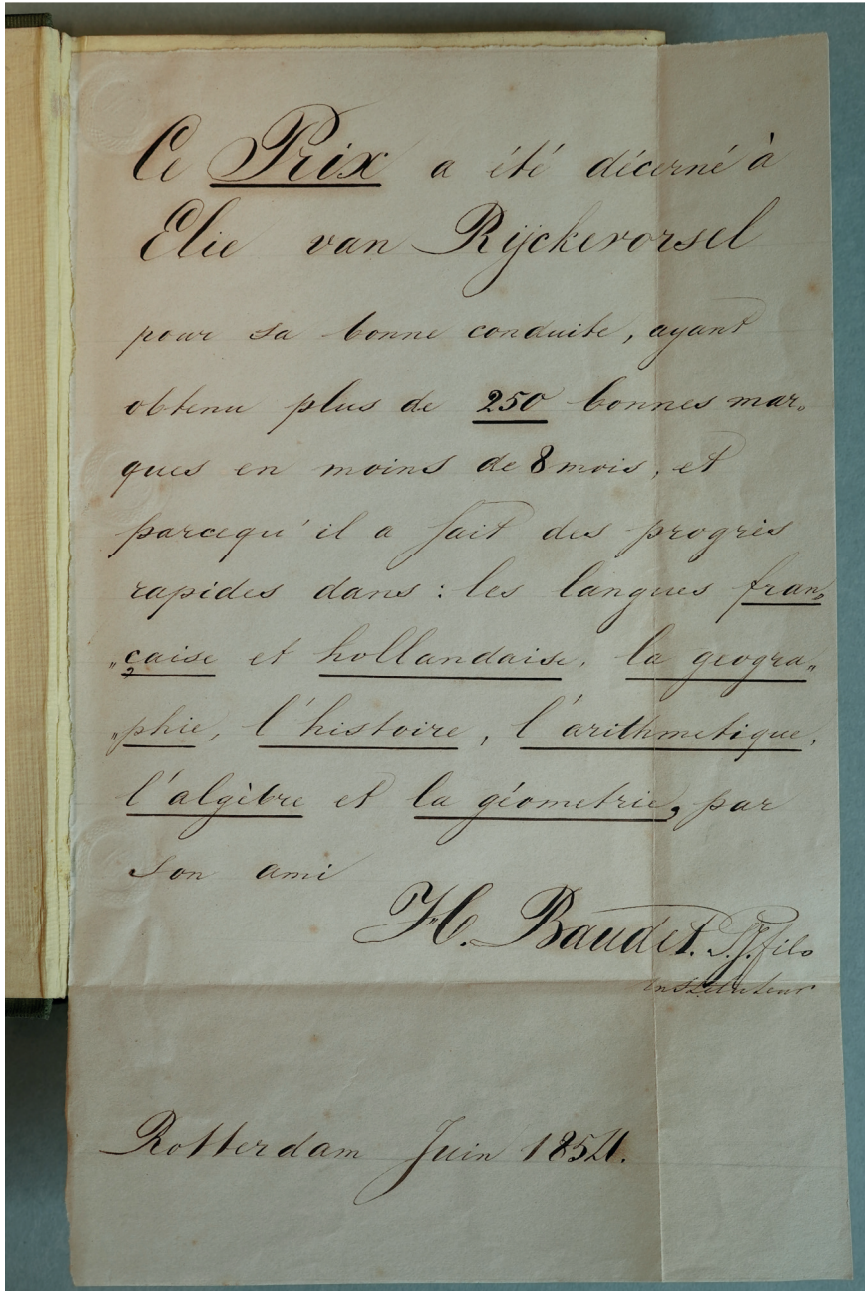 Ce Prix a été décerné à
Elie van Rijckevorsel
pour sa bonne conduite, ayant
obtenu plus de 250 bonnes mar„
ques en moins de 8 mois, et
parcequ'il a fait des progrès
rapides dans : les langues fran„
„çaise et hollandaise, la geogra„
„phie, l'histoire, l'arithmetique,
l'algèbre et la géometrie, par
son ami
H. Baudet. P.J.filo
instituteur
Rotterdam Juin 1854.